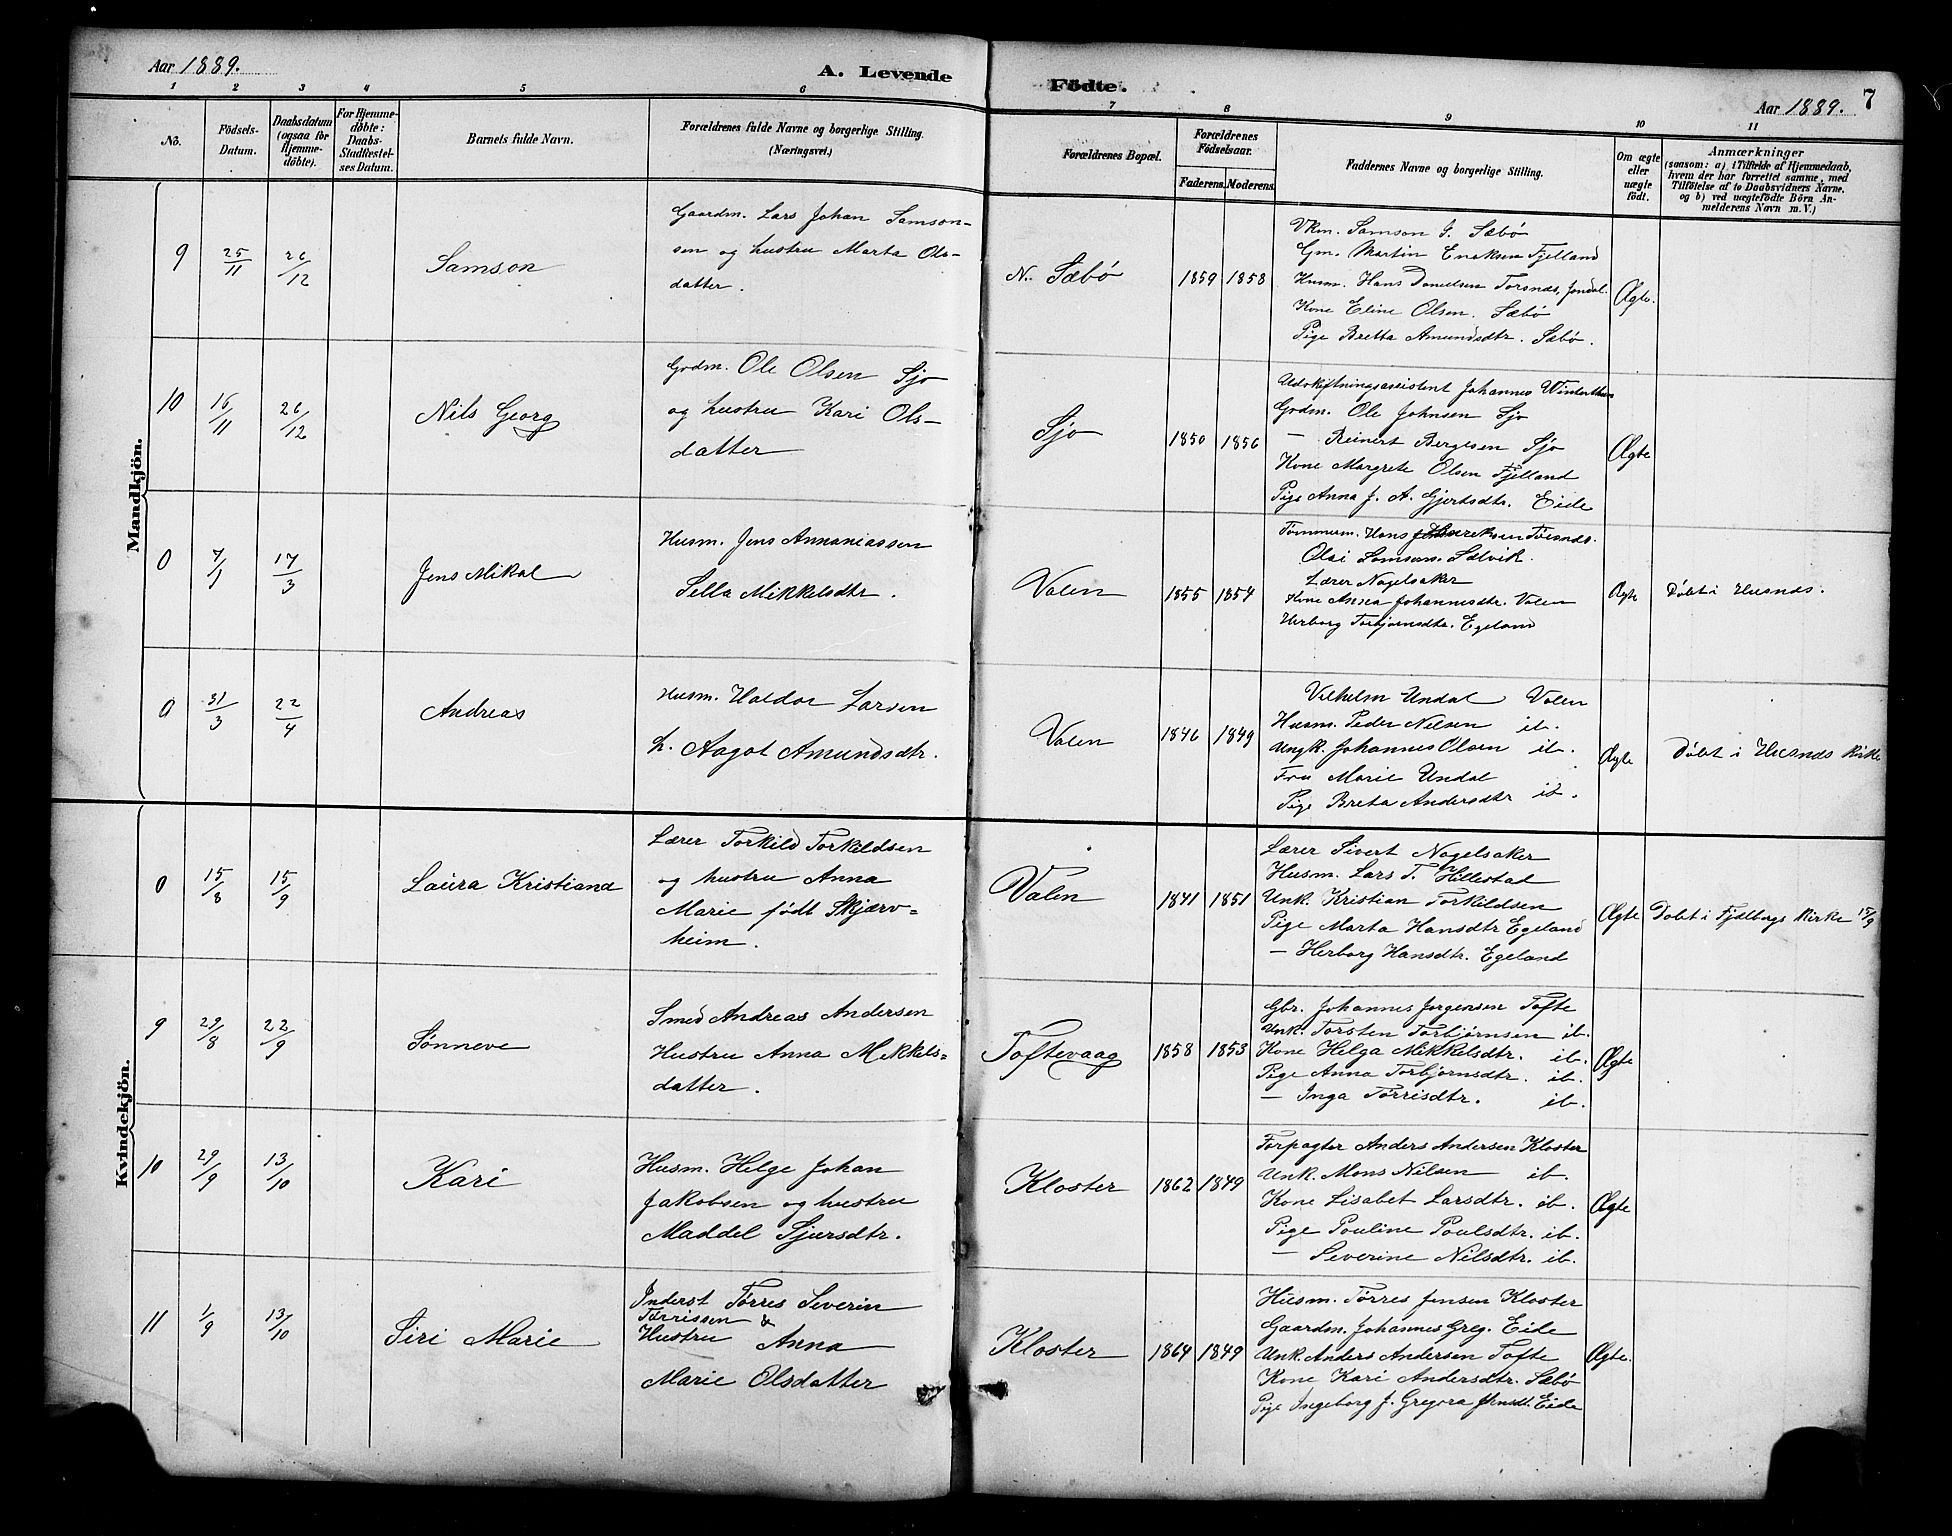 Aar 1889.
A. Levende Födte.
Aar 1889. 7
1 2 3 4 5 6 7 8 9 10 11
No.
Födsels-Datum.
Daabsdatum (ogsaa for Hjemme-döbte).
For Hjemme-döbte: Daabs-Stadfæstel-ses Datum.
Barnets fulde Navn.
Forældrenes fulde Navne og borgerlige Stilling. (Næringsvei.)
Forældrenes Bopæl.
Forældrenes Födselsaar.
Faderens. Moderens.
Faddernes Navne og borgerlige Stilling.
Om ægte eller uægte födt.
Anmærkninger
(saasom: a) i Tilfælde af Hjemmedaab,
hvem der har forrettet samme, med
Tilföielse af to Daabsvidners Navne.
og b) ved uægtefödte Börn An-
melderens Navn m. V.)
Mandkjön.
9 25/11 26/12 Samson
Gaardm. Lars Johan Samson-
sen og hustru Marta Ols-
datter.
N. Sæbø 1859 1858
Vkm. Samson J. Sæbø
Gm. Martin Enoksen Fjelland
Husm. Hans Danielsen Torsnæs, Jondal.
Kone Eline Olsen. Sæbø
Pige Bretta Amundsdtr. Sæbø.
Ægte.
10 16/11 26/12 Nils Georg
Grdm. Ole Olsen Sjo
og hustru Kari Ols-
datter
Sjo 1850 1856
Udskiftningsassistent Johannes
Grdm. Ole Johnsen Sjo
— Reinert Bergesen Sjo
Kone Margrete Olsen Fjelland
Pige Anna J. A. Gjertsdtr. Eide
Ægte
0 7/1 17/3 Jens Mikal
Husm. Jens Annaniassen
Sella Mikkelsdtr.
Valen 1855 1854
Tømmerm. Hans
Olai Samson. Sælvik.
Lærer Nagelsaker
Kone Anna Johannesdtr. Valen
Herborg Torbjørnsdtr. Egeland
Ægte Døbt i Husnæs.
0 31/3 22/4 Andreas
Husm. Haldor Larsen
h. Aagot Amundsdtr.
Valen 1846 1849
Vilhelm Undal Valen
Husm. Peder Nilsen ib.
Ungk. Johannes Olsen ib.
Fru Marie Undal
Pige Breta Andersdtr ib.
Ægte Døbt i Husnæs Kirke
Kvindekjön.
0 15/8 15/9 Laura Kristiane
Lærer Torkild Torkildsen
og hustru Anna
Marie født Skjærv-
heim.
Valen 1841 1851
Lærer Sivert Nagelsaker
Husm. Lars T. Hillestad
Unk. Kristian Torkildsen
Pige Marta Hansdtr Egeland
— Herborg Hansdtr. Egeland
Ægte Døbt i Fjelbergs Kirke 15/9
9 29/8 22/9 Sønneve
Smed Andreas Andersen
Hustru Anna Mikkels-
datter.
Toftevaag 1858 1853
Gbr. Johannes Jørgensen Tofte
Unk. Torsten Torbjørnsen ib.
Kone Helga Mikkelsdtr. ib.
Pige Anna Torbjørnsdtr. ib.
— Inga Tørrisdtr. ib.
Ægte
10 29/9 13/10 Kari
Husm. Helge Johan
Jakobsen og hustru
Maddel Sjursdtr.
Kloster 1862 1849
Forpagter Anders Andersen Kloster
Unk. Mons Nilsen ib.
Kone Lisabet Larsdtr. ib.
Pige Pouline Poulsdtr. ib.
— Severine Nilsdtr. ib.
Ægte
11 1/9 13/10 Siri Marie
Inderst Tørres Severin
Tørrissen &
Hustru Anna
Marie Olsdatter
Kloster 1864 1849
Husm. Tørres Jensen Kloster
Gaardm. Johannes Greg. Eide
Unk. Anders Andersen Tofte
Kone Kari Andersdtr. Sæbø
Pige Ingeborg J. Gregora Eide
Ægte.